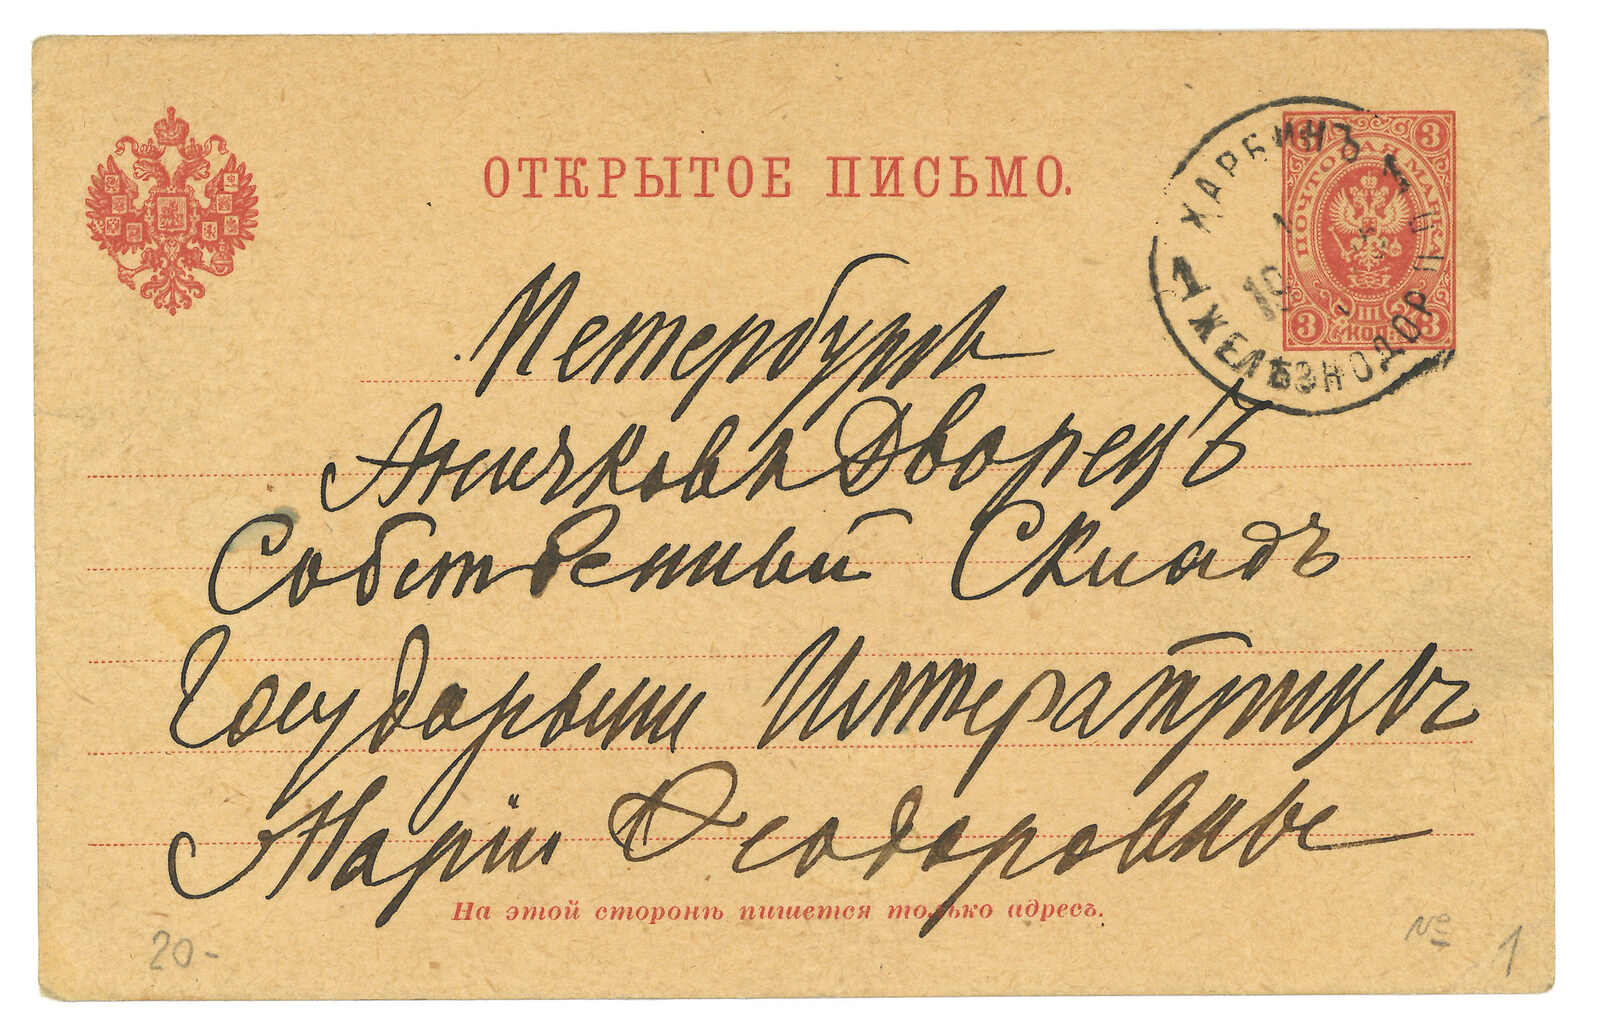 ОТКРЫТОЕ ПИСЬМО.
ХАРБИНЪ
1 ЖЕЛѢЗНОДОР. П. О.
ПОЧТОВАЯ МАРКА
3 3 3
КОП.
Петербургъ
Аничковъ Дворецъ
Собственный Складъ
Государыни Императрицы
Маріи Ѳеодоровны
На этой сторонѣ пишется только адресъ.
20-
№ 1